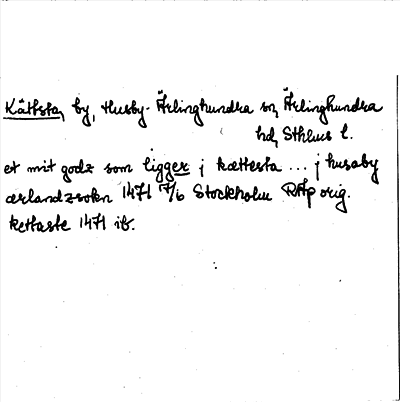 Kättsta, by, Husby-Ärlinghundra sn, Ärlinghundra
hd, Sthlms l.
et mit godz som ligger j kættesta ... j husaby
ærlandzsokn 1471 17/6 Stockholm RAp orig.
kettaste 1471 ib.